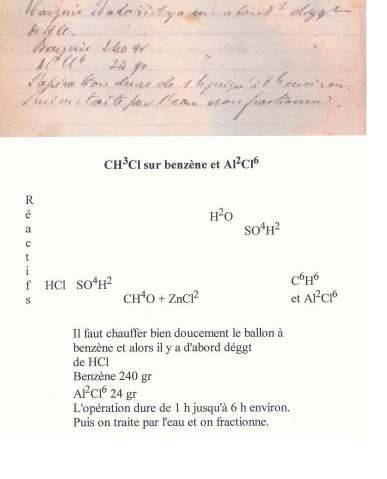 benzine et alors il y a d'abord déggt
de HCl.
Benzine 240 gr
Al²Cl⁶ 24 gr
L'opération dure de 1 h jusqu'à 6 h environ.
Puis on traite par l'eau et on fractionne.
CH³Cl sur benzène et Al²Cl⁶
Réactifs
H²O
SO⁴H²
HCl SO⁴H²
CH⁴O + ZnCl²
C⁶H⁶
et Al²Cl⁶
Il faut chauffer bien doucement le ballon à
benzène et alors il y a d'abord déggt
de HCl
Benzène 240 gr
Al²Cl⁶ 24 gr
L'opération dure de 1 h jusqu'à 6 h environ.
Puis on traite par l'eau et on fractionne.